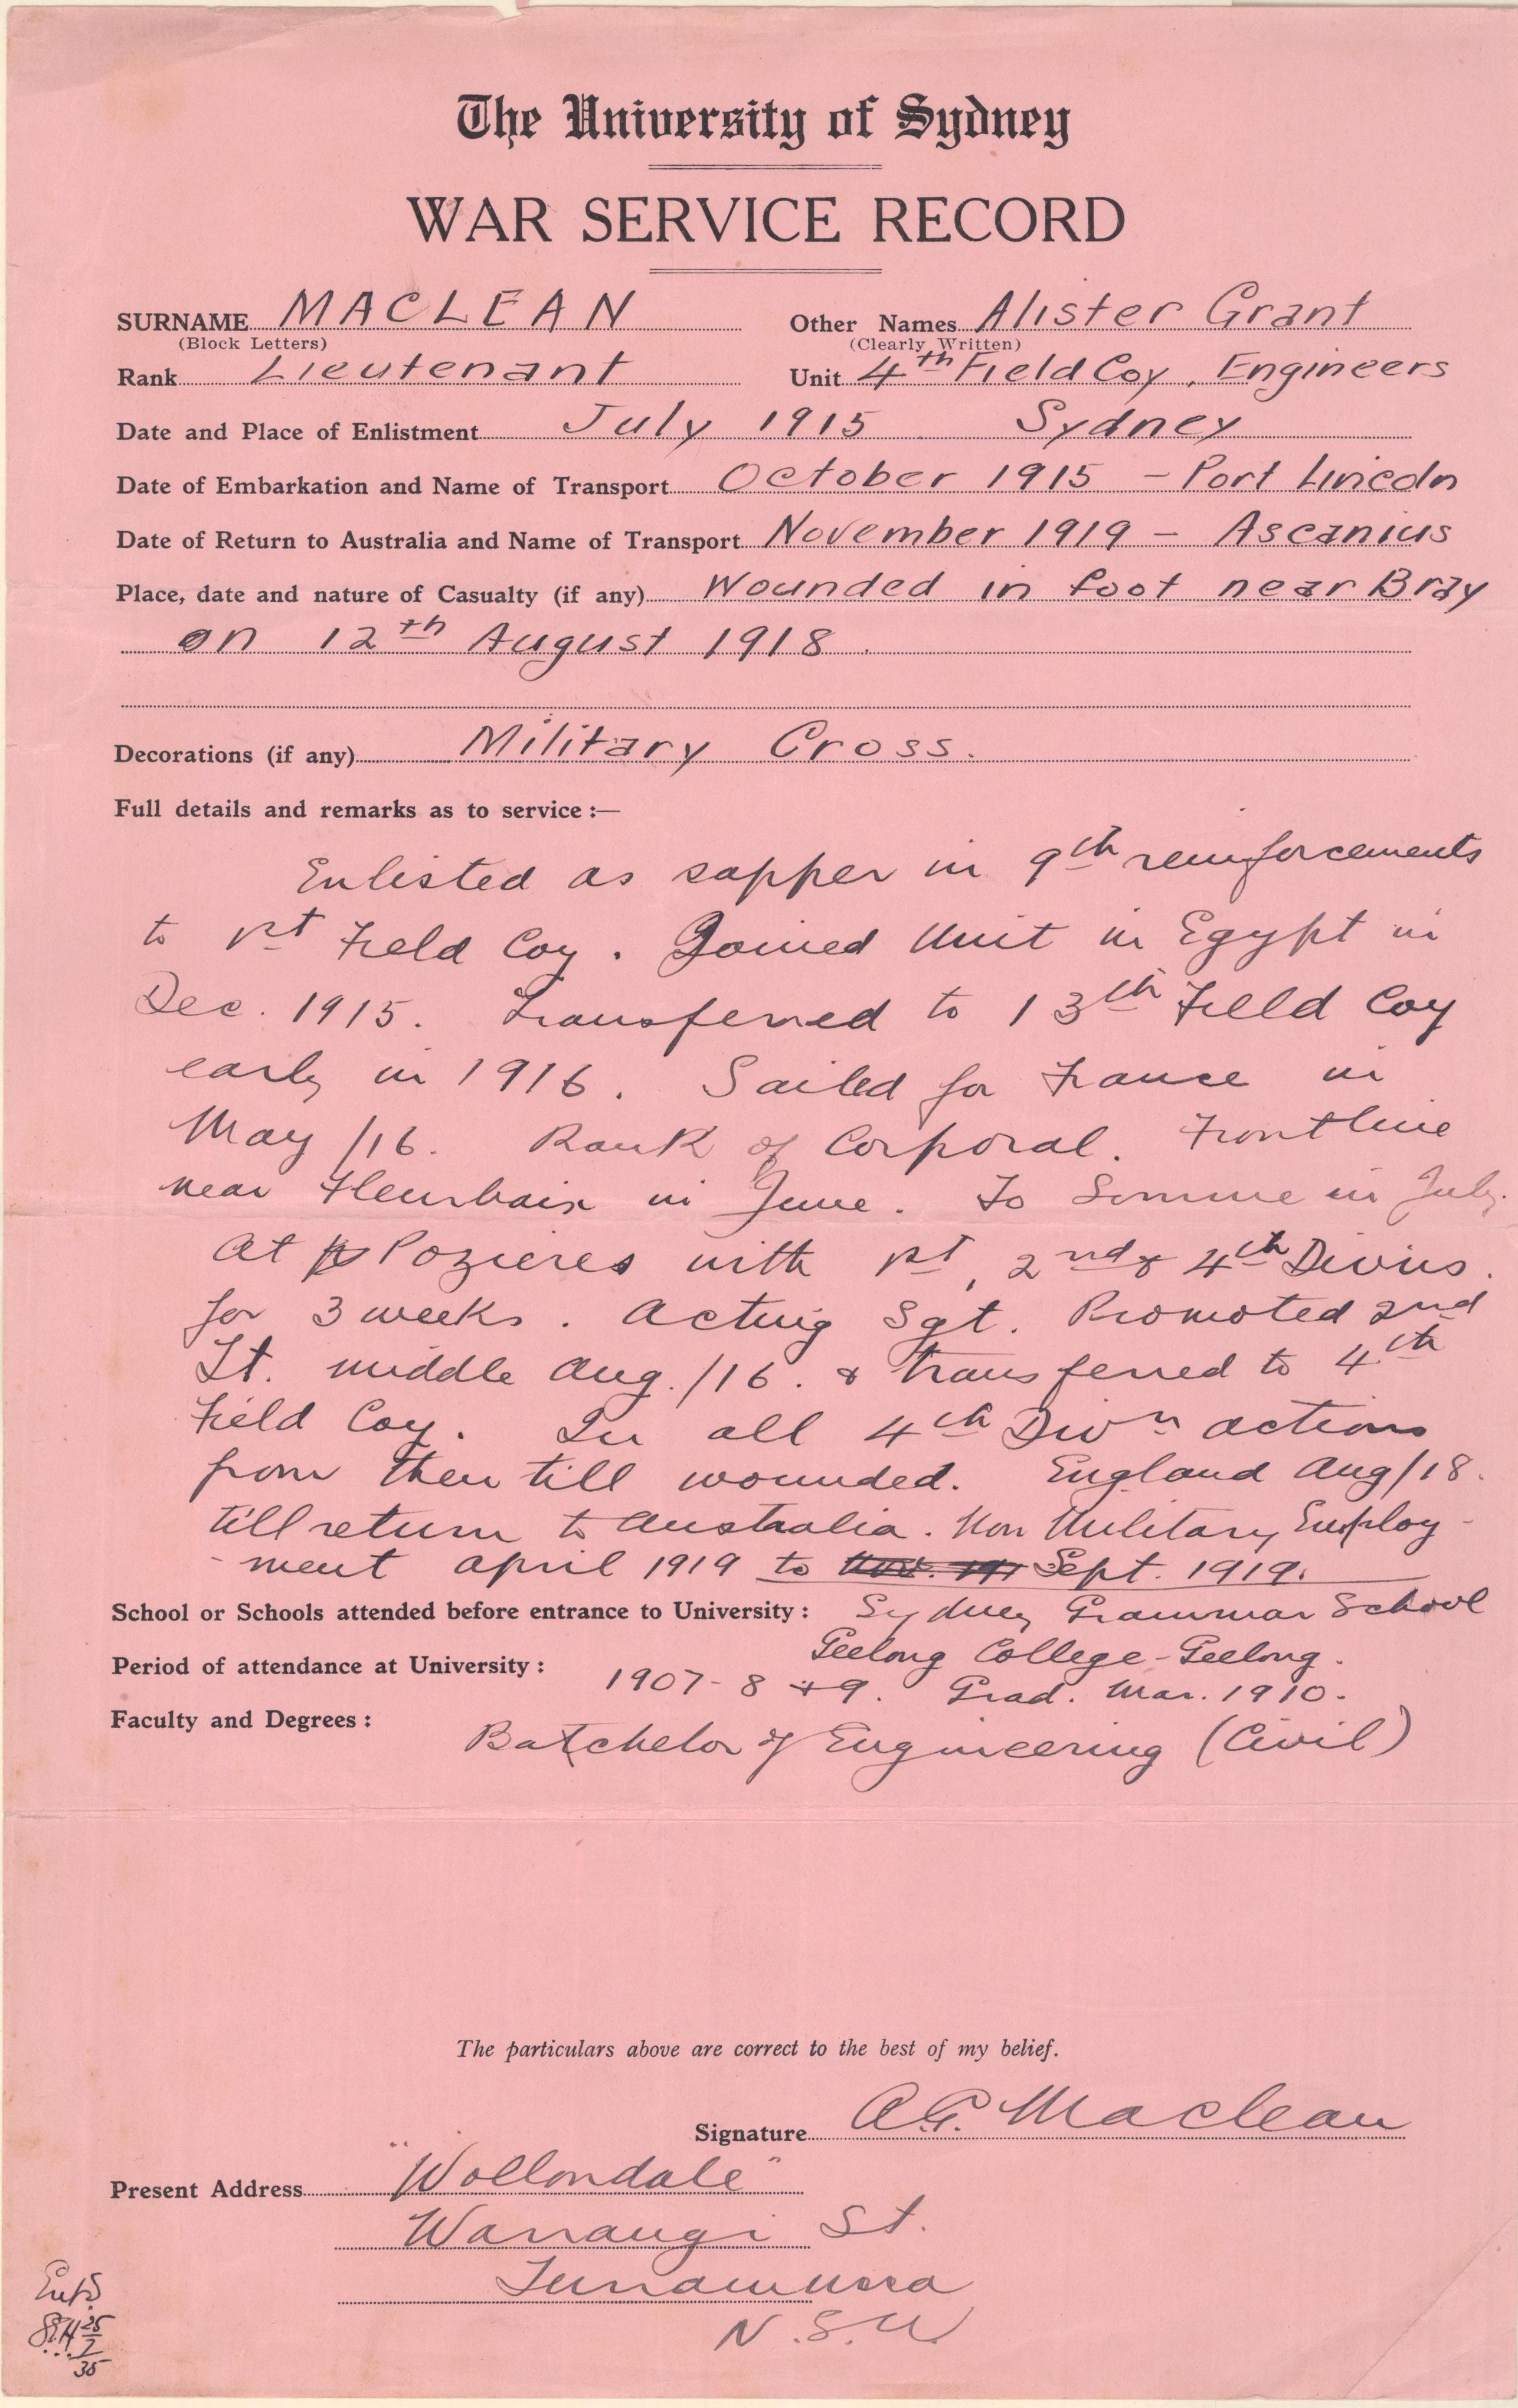 The University of Sydney
WAR SERVICE RECORD
SURNAME MACLEAN Other Names Alister Grant
(Block Letters) (Clearly Written)
Rank Lieutenant Unit 4th Field Coy, Engineers
Date and Place of Enlistment July 1915 Sydney
Date of Embarkation and Name of Transport October 1915 - Port Lincoln
Date of Return to Australia and Name of Transport November 1919 - Ascanius
Place, date and nature of Casualty (if any) Wounded in foot near Bray
on 12th August 1918.
Decorations (if any) Military Cross.
Full details and remarks as to service :—
Enlisted as sapper in 9th reinforcements
to 1st Field Coy. Joined Unit in Egypt in
Dec. 1915. Transferred to 13th Field Coy
early in 1916. Sailed for France in
May /16. Rank of Corporal. Frontline
near Fleurbaix in June. To Somme in July.
At Pozieres with 1st, 2nd & 4th Divins.
for 3 weeks. Acting Sgt. Promoted 2nd
Lt. middle Aug./16. & transferred to 4th
Field Coy. In all 4th Divn actions
from then till wounded. England Aug/18.
till return to Australia. Non Military Employ-
-ment April 1919 to Sept. 1919.
School or Schools attended before entrance to University : Sydney Grammar School
Geelong College - Geelong.
Period of attendance at University : 1907-8 + 9. Grad. Mar. 1910.
Faculty and Degrees : Batchelor of Engineering (Civil)
The particulars above are correct to the best of my belief.
Signature A.G. Maclean
Present Address "Wollondale"
Warrangi St.
Turramurra
N.S.W.
25
7
35